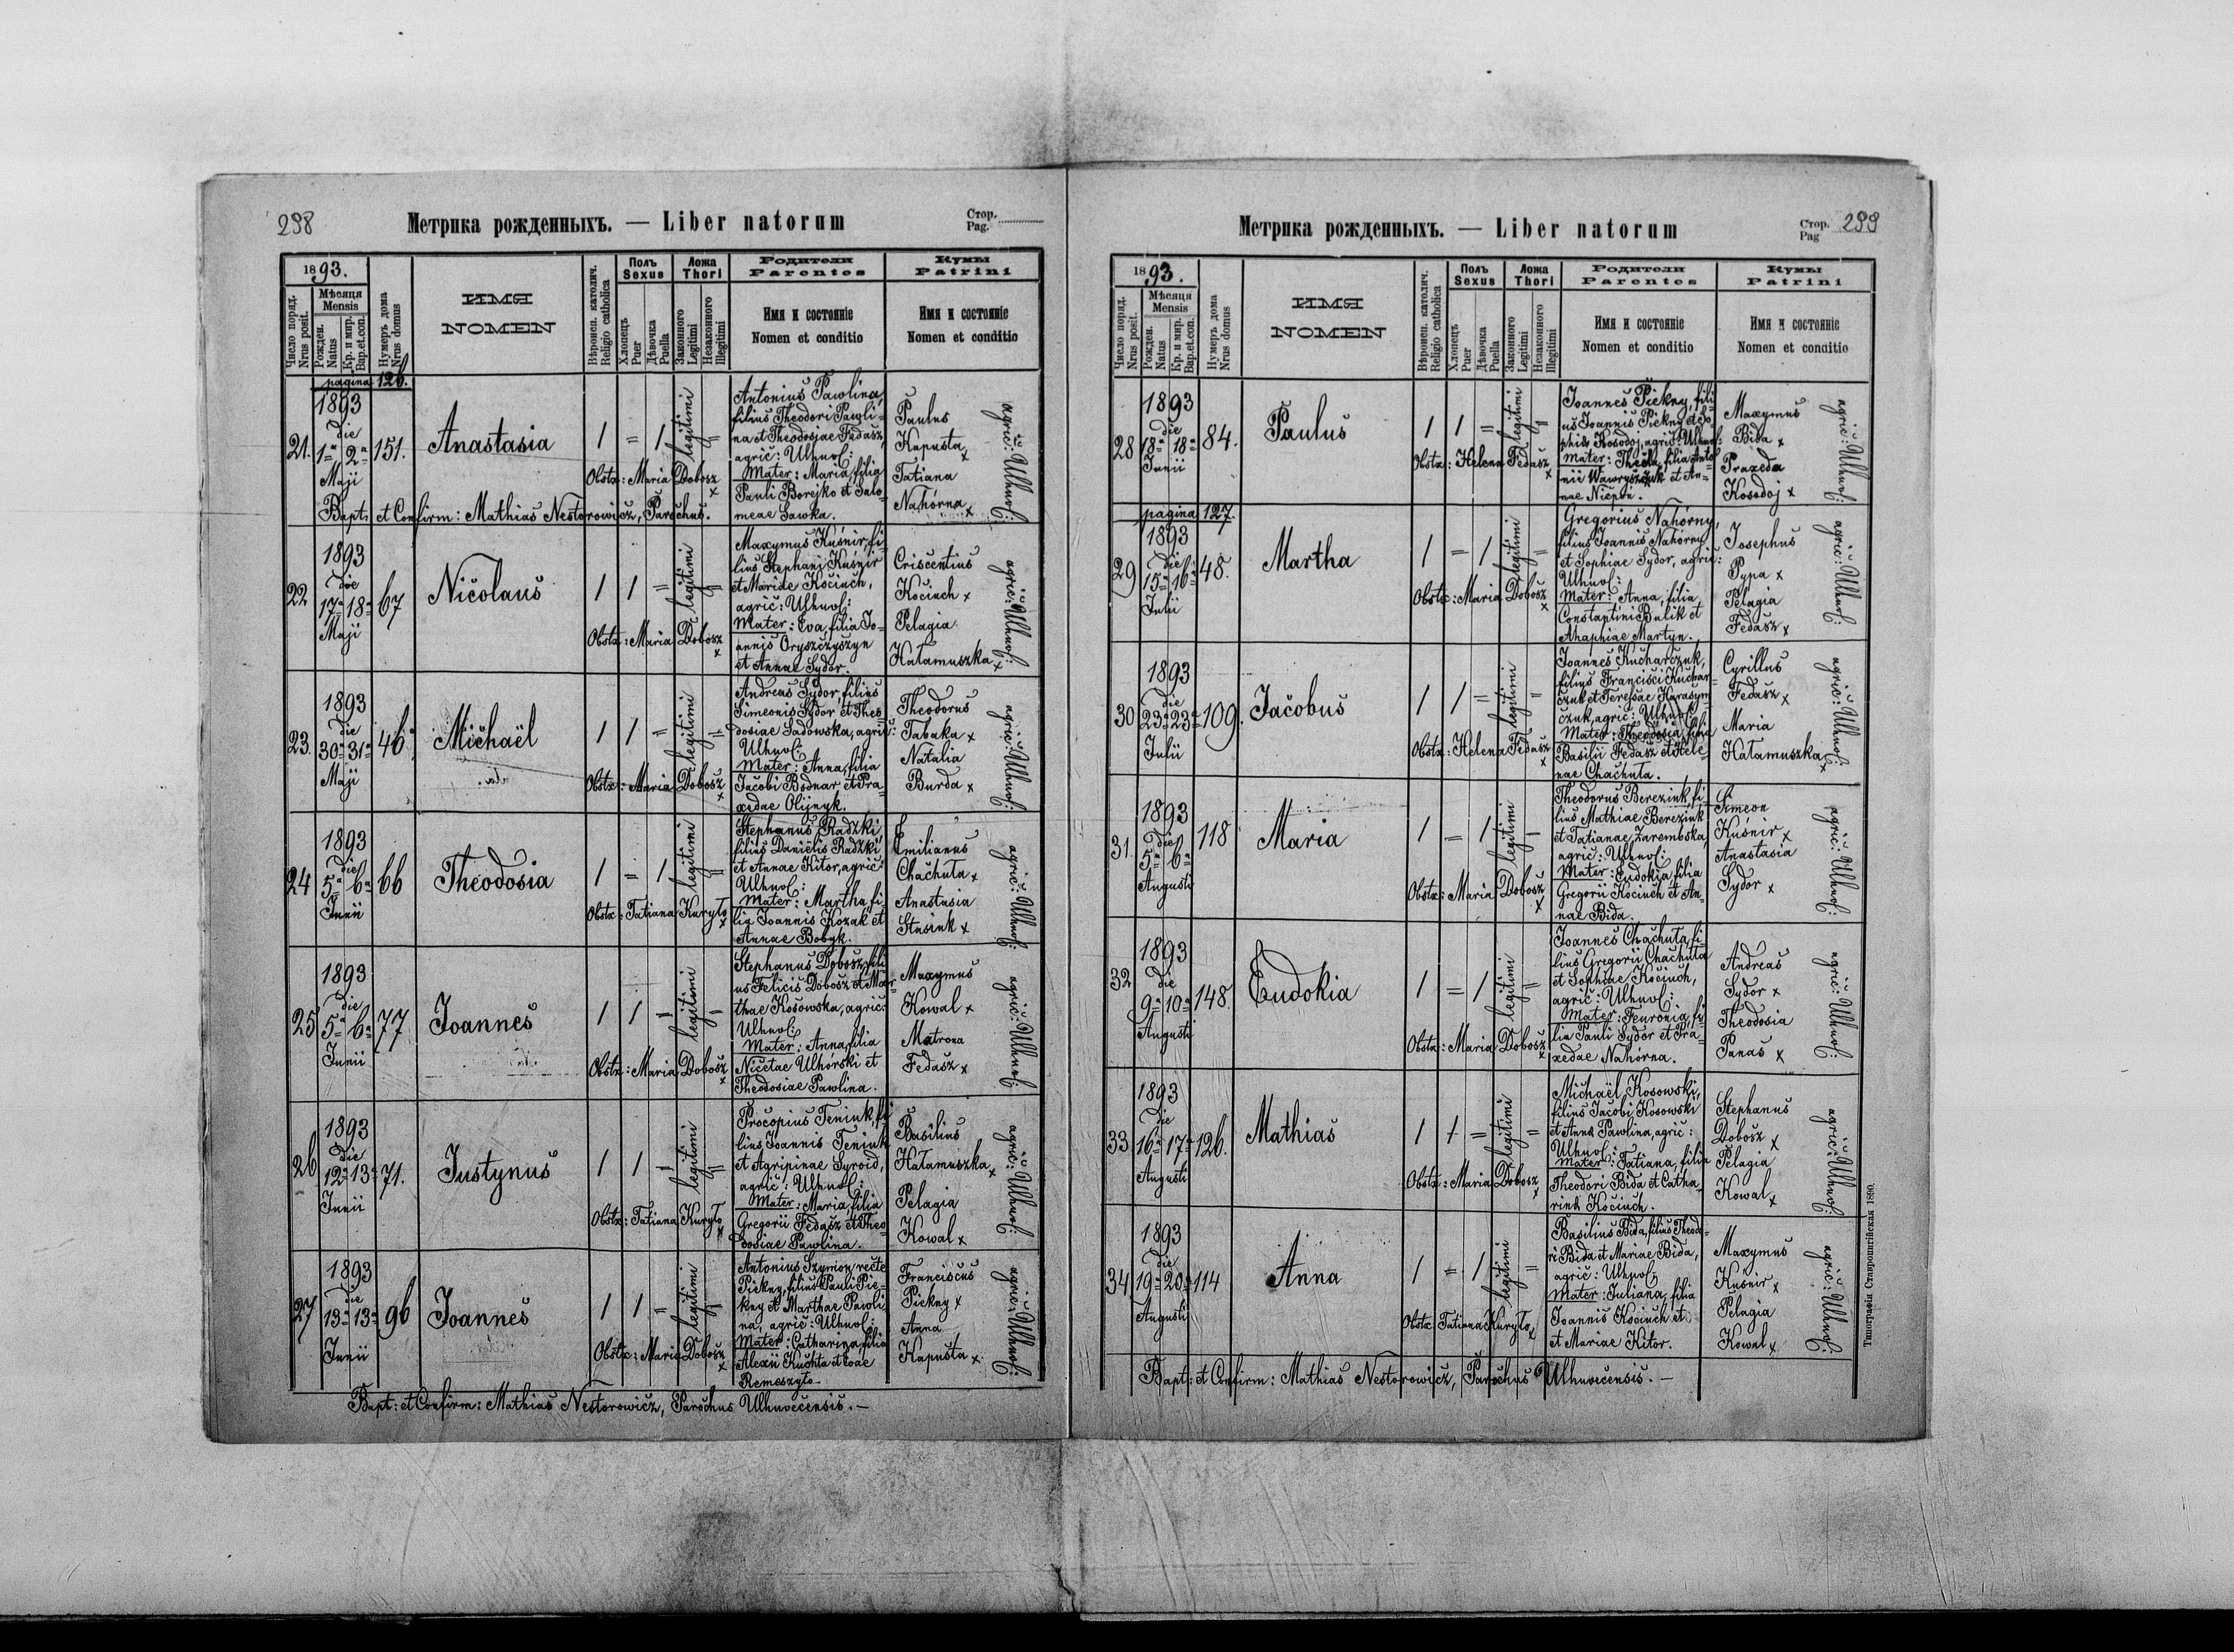 298
Метрика рожденныхъ. — Liber natorum
Стор.
Pag.
1893.
Число поряд.
Nrus posit.
Мѣсяця
Mensis
Рожден.
Natus
Кр. и мир.
Bap.et.con.
Нумеръ дома
Nrus domus
ИМЯ
NOMEN
Вѣроисп. католич.
Religio catholica
Полъ
Sexus
Хлопецъ
Puer
Дѣвочка
Puella
Ложа
Thori
Законного
Legitimi
Незаконного
Illegitimi
Родители
Parentes
Имя и состояніе
Nomen et conditio
Кумы
Patrini
Имя и состояніе
Nomen et conditio
pagina 126.
21.
1893
die
1a 2a
Maji
151.
Anastasia
1 = 1 legitimi =
Obstx: Maria Dobosz x
Antonius Pawlina,
filius Theodori Pawli-
na et Theodosiae Fedasz,
agric: Uhnov:
Mater: Maria, filia
Pauli Borejko et Salo-
meae Sawka.
Paulus
Kapusta x
Tatiana
Nahórna x
agric: Ulhnov:
Bapt. et Confirm: Mathias Nestorowicz, Parochus.
22
1893
die
17a 18a
Maji
67
Nicolaus
1 1 = legitimi =
Obstx: Maria Dobosz x
Maxymus Kuśnir, fi-
lius Stephani Kuśnir
et Mariae Kociuch,
agric: Ulhnov:
Mater: Eva, filia Jo-
annis Oryszczyszyn
et Annae Sydor.
Criscentius
Kociuch x
Pelagia
Hałamuszka x
agric: Ulhnov:
23.
1893
die
30a 31a
Maji
46
Michaël
1 1 = legitimi =
Obstx: Maria Dobosz x
Andreas Sydor, filius
Simeonis Sydor et Theo-
dosiae Sadowska, agric:
Ulhnov:
Mater: Anna, filia
Jacobi Bodnar et Pra-
xedae Olijnyk.
Theodorus
Tabaka x
Natalia
Burda x
agric: Ulhnov:
24
1893
die
5a 6a
Junii
66
Theodosia
1 = 1 legitimi =
Obstx: Tatiana Kuryło x
Stephanus Radzki,
filius Danielis Radzki
et Annae Kitor, agric:
Ulhnov:
Mater: Martha, fi-
lia Joannis Kozak et
Annae Bobyk.
Emilianus
Chachuta x
Anastasia
Stasiuk x
agric: Ulhnov:
25
1893
die
5a 6a
Junii
77.
Joannes
1 1 = legitimi =
Obstx: Maria Dobosz x
Stephanus Dobosz, fili-
us Felicis Dobosz et Mar-
thae Kosowska, agric:
Ulhnov:
Mater: Anna, filia
Nicetae Ulhórski et
Theodosiae Pawlina.
Maxymus
Kowal x
Matrona
Fedasz x
agric: Ulhnov:
26
1893
die
12a 13a
Junii
71.
Justynus
1 1 = legitimi =
Obstx: Tatiana Kuryło x
Procopius Teniuk, fi-
lius Joannis Teniuk
et Agripinae Syroid,
agric: Ulhnov:
Mater: Maria, filia
Gregorii Fedasz et Theo-
dosiae Pawlina.
Basilius
Hałamuszka x
Pelagia
Kowal x
agric: Ulhnov:
27
1893
die
13a 13a
Junii
96
Joannes
1 1 = legitimi =
Obstx: Maria Dobosz x
Antonius Szymon, recte
Piekny, filius Pauli Pie-
kny et Marthae Pawli-
na, agric: Ulhnov:
Mater: Catharina, filia
Alexii Kuchta et Evae
Remeszyło.
Franciscus
Piekny x
Anna
Kapusta x
agric: Ulhnov:
Bapt: et Confirm: Mathias Nestorowicz, Parochus Ulhuvecensis. —
Метрика рожденныхъ. — Liber natorum
Стор.
Pag
299
1893.
Число поряд.
Nrus posit.
Мѣсяця
Mensis
Рожден.
Natus
Кр. и мир.
Bap.et.con.
Нумеръ дома
Nrus domus
ИМЯ
NOMEN
Вѣроисп. католич.
Religio catholica
Полъ
Sexus
Хлопецъ
Puer
Дѣвочка
Puella
Ложа
Thori
Законного
Legitimi
Незаконного
Illegitimi
Родители
Parentes
Имя и состояніе
Nomen et conditio
Кумы
Patrini
Имя и состояніе
Nomen et conditio
28
1893
die
18a 18a
Junii
84.
Paulus
1 1 = legitimi =
Obstx: Helena Fedasz x
Joannes Piekny, fili-
us Joannis Piekny et So-
phiae Kosodoj, agric: Ulhnov:
Mater: Thecla, filia Anto-
nii Wawryszczuk et An-
nae Niepon.
Maxymus
Bida x
Praxeda
Kosodoj x
agric: Ulhnov:
pagina 127.
29
1893
die
15a 16a
Julii
48.
Martha
1 = 1 legitimi =
Obstx: Maria Dobosz x
Gregorius Nahórny,
filius Joannis Nahórny
et Sophiae Sydor, agric:
Ulhnov:
Mater: Anna, filia
Constantini Bulik et
Ahaphiae Martyn.
Josephus
Pypa x
Pelagia
Fedasz x
agric: Ulhnov:
30
1893
die
23a 23a
Julii
109.
Jacobus
1 1 = legitimi =
Obstx: Helena Fedasz x
Joannes Kucharczuk,
filius Francisci Kuchar-
czuk et Teressae Harasym-
czuk, agric: Ulhnov:
Mater: Theodosia, filia
Basilii Fedasz et Hele-
nae Chachuta.
Cyrillus
Fedasz x
Maria
Hałamuszka x
agric: Ulhnov:
31.
1893
die
5a 6a
Augusti
118
Maria
1 = 1 legitimi =
Obstx: Maria Dobosz x
Theodorus Bereziuk, fi-
lius Mathiae Bereziuk
et Tatianae Zarembska,
agric: Ulhnov:
Mater: Eudokia, filia
Gregorii Kociuch et An-
nae Bida.
Simeon
Kuśnir x
Anastasia
Sydor x
agric: Ulhnov:
32
1893
die
9a 10a
Augusti
148.
Eudokia
1 = 1 legitimi =
Obstx: Maria Dobosz x
Joannes Chachuta, fi-
lius Gregorii Chachuta
et Sophiae Kociuch,
agric: Ulhnov:
Mater: Feuronia, fi-
lia Pauli Sydor et Pra-
xedae Nahórna.
Andreas
Sydor x
Theodosia
Panas x
agric: Ulhnov:
33
1893
die
16a 17a
Augusti
126.
Mathias
1 1 = legitimi =
Obstx: Maria Dobosz x
Michaël Kosowski,
filius Jacobi Kosowski
et Annae Pawlina, agric:
Ulhnov:
Mater: Tatiana, filia
Theodori Bida et Catha-
rinae Kociuch.
Stephanus
Dobosz x
Pelagia
Kowal x
agric: Ulhnov:
34
1893
die
19a 20a
Augusti
114
Anna
1 = 1 legitimi =
Obstx: Tatiana Kuryło x
Basilius Bida, filius Theodo-
ri Bida et Mariae Bida,
agric: Ulhnov:
Mater: Juliana, filia
Joannis Kociuch et
et Mariae Kitor.
Maxymus
Kuśnir x
Pelagia
Kowal x
agric: Ulhnov:
Bapt: et Confirm: Mathias Nestorowicz, Parochus Ulhuvecensis. —
Типографія Ставропигійская 1890.